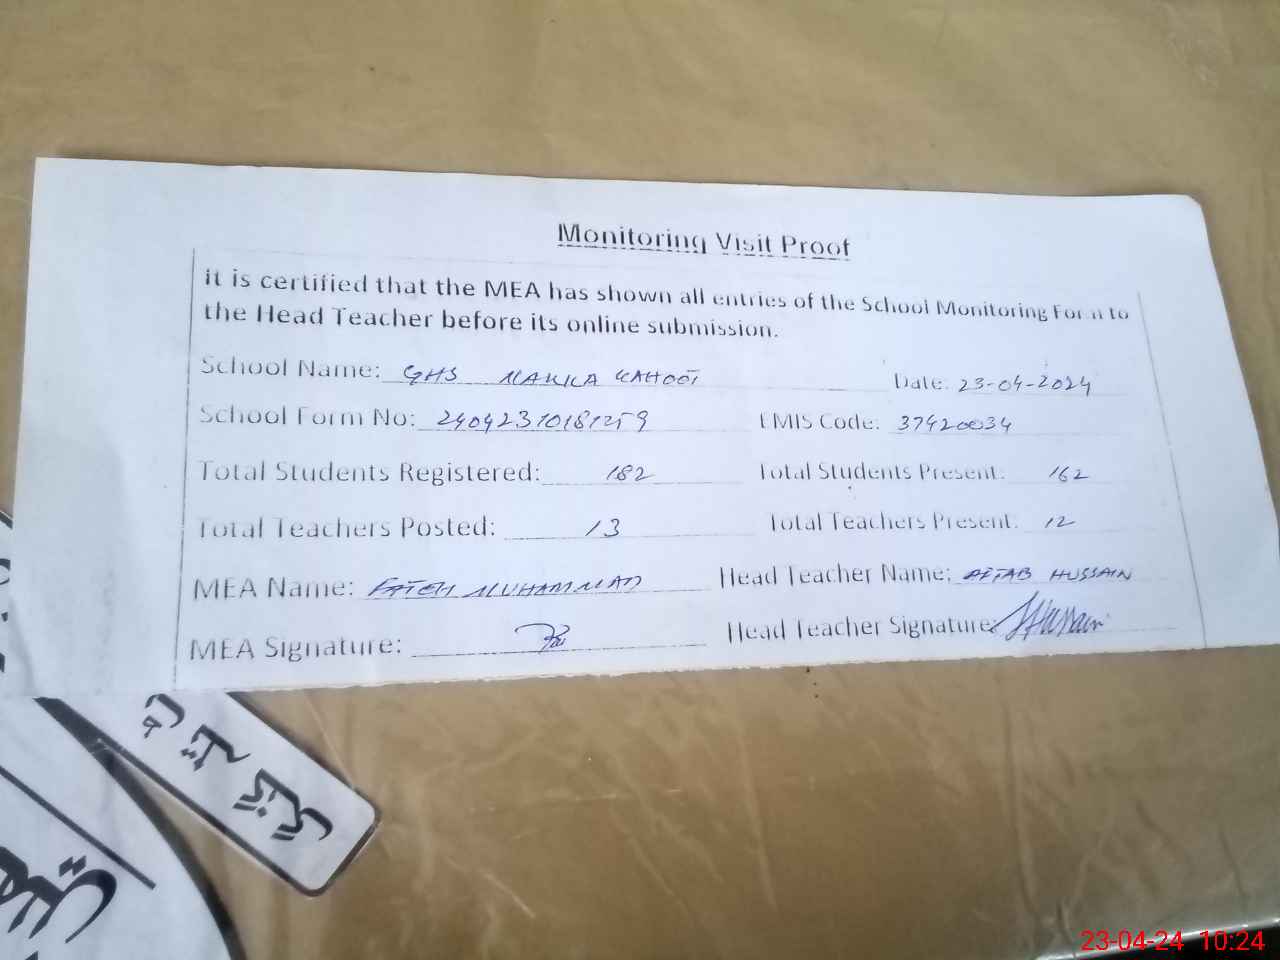 Monitoring Visit Proof
It is certified that the MEA has shown all entries of the School Monitoring Form to
the Head Teacher before its online submission.
School Name: GHS NAKKA KAHOOT Date: 23-04-2024
School Form No: EMIS Code: 37420034
Total Students Registered: 182 Total Students Present: 162
Total Teachers Posted: 13 Total Teachers Present: 12
MEA Name: FATEH MUHAMMAD Head Teacher Name: AFTAB HUSSAIN
MEA Signature: Head Teacher Signature: Hussain
23-04-24 10:24